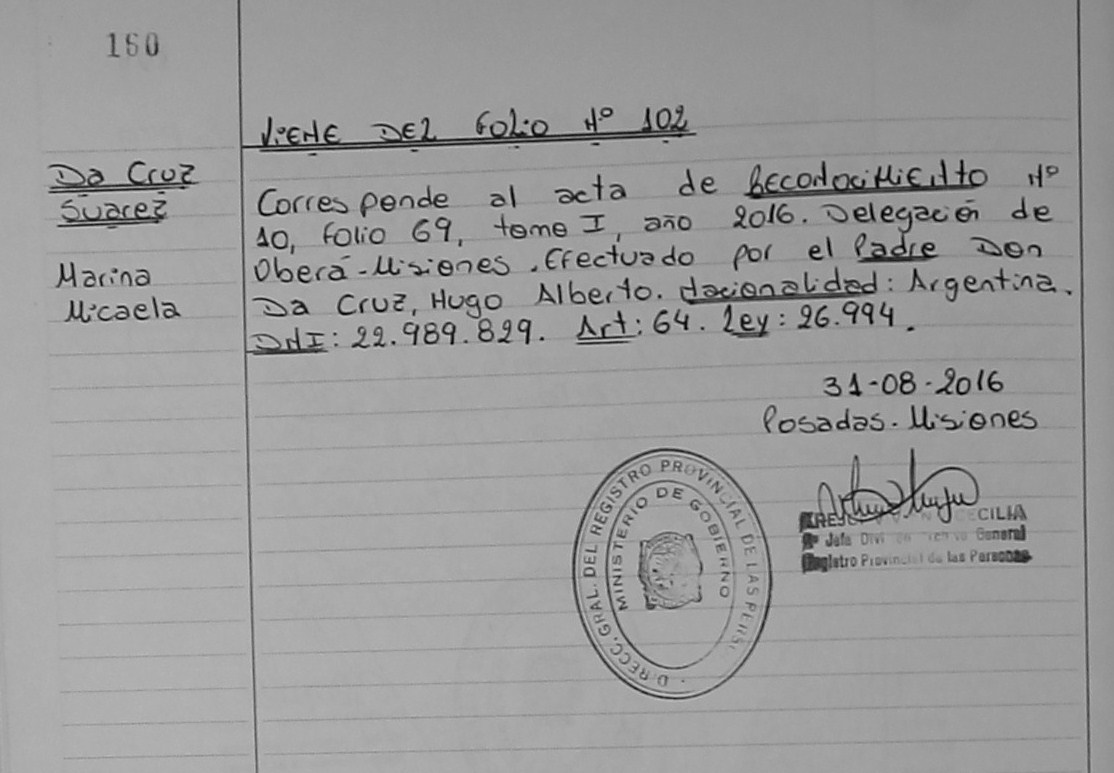 160
VIENE DEL FOLIO Nº 102
Da Cruz
Suarez
Marina
Micaela
Corresponde al acta de Reconocimiento Nº
10, Folio 69, tomo I, año 2016. Delegación de
Oberá-Misiones. Efectuado por el Padre Don
Da Cruz, Hugo Alberto. Nacionalidad: Argentina.
DNI: 22.989.829. Art: 64. Ley: 26.994.
31-08-2016
Posadas-Misiones
DIRECC. GRAL. DEL REGISTRO PROVINCIAL DE LAS PERS.
MINISTERIO DE GOBIERNO
CECILIA
Jefa General
Registro Provincial de las Personas